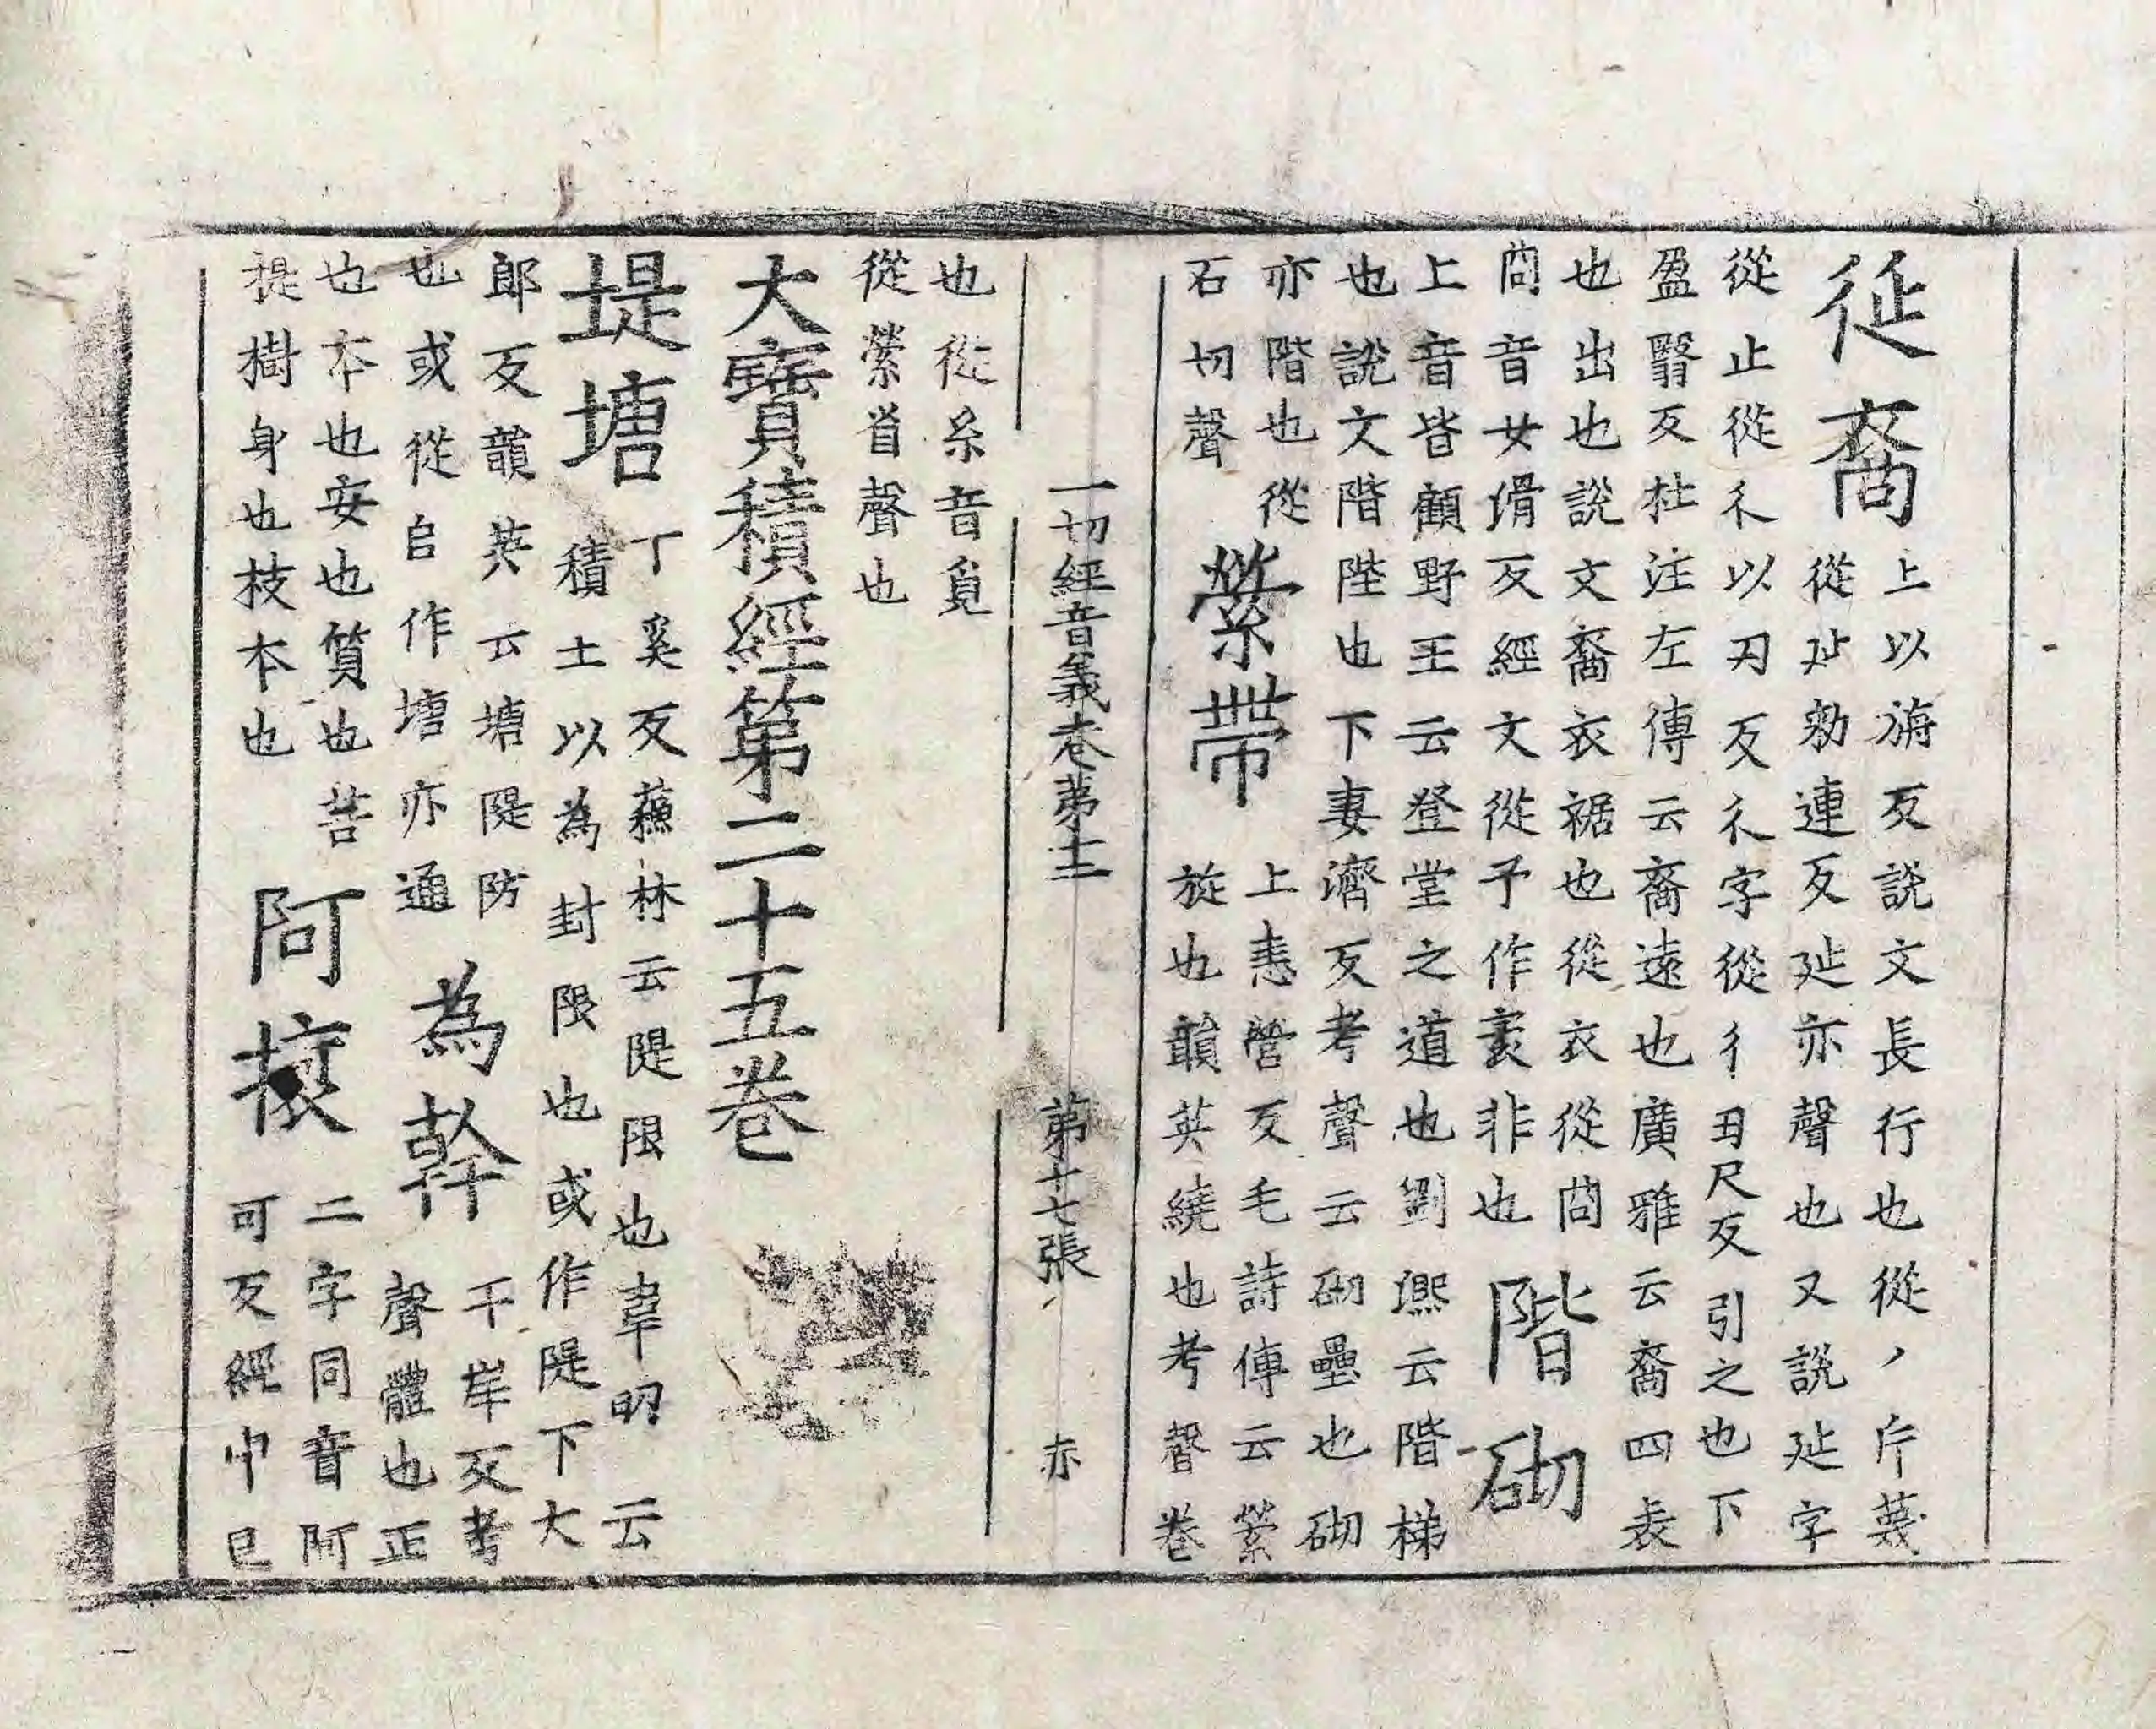 延裔
上以旃反說文長行也從丿𠂆䔾
從㢟勑連反㢟亦聲也又說㢟字
從止從彳以刃反彳字從彳丑尺反引之也下
盈翳反杜注左傳云裔遠也廣雅云裔四表
也出也說文裔衣裾也從衣從㕯
㕯音女猾反經文從予作裦非也
階砌
上音皆顧野王云登堂之道也劉熙云階梯
也說文階陛也下妻濟反考聲云砌壘也砌
亦階也從
石切聲
縈帶
上恚營反毛詩傳云縈
旋也韻英繞也考聲卷
一切經音義卷第十二 第十七張 亦
也從糸音覓
從縈省聲也
大寶積經第二十五卷
堤塘
丁奚反蘇林云隄限也韋昭云
積土以為封限也或作隄下大
郎反韻英云塘隄防
也或從𨸏作塘亦通
為幹
干岸反考
聲體也正
也本也安也質也苦
提樹身也枝本也
阿㨲
二字同音阿
可反經中已